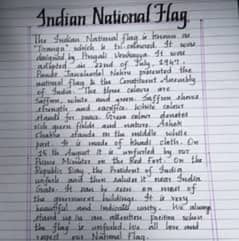 Indian National Flag
The Indian National flag is known as
"Tiranga" which is tri-coloured. It was
designed by Pingali Venkayya. It was
adopted on 22nd of July, 1947.
Pandit Jawaharlal Nehru presented the
national flag to the Constituent Assembly
of India. The three colours are
Saffron, white and green. Saffron shows
strength and sacrifice. White colour
stands for peace. Green colour denotes
rich green fields and nature. Ashok
Chakra stands in the middle white
part. It is made of khadi cloth. On
15 th August it is unfurled by our
Prime Minister on the Red Fort. On the
Republic Day the President of India
unfurls and then salutes it near India
Gate. It can be seen on most of
the government buildings. It is very
beautiful and indicates unity. We always
stand up in an attention position when
the flag is unfurled. We all love and
respect our National Flag.